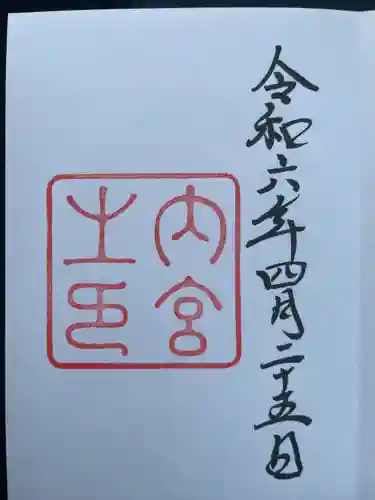 令和六年四月二十五日
内宮
之印